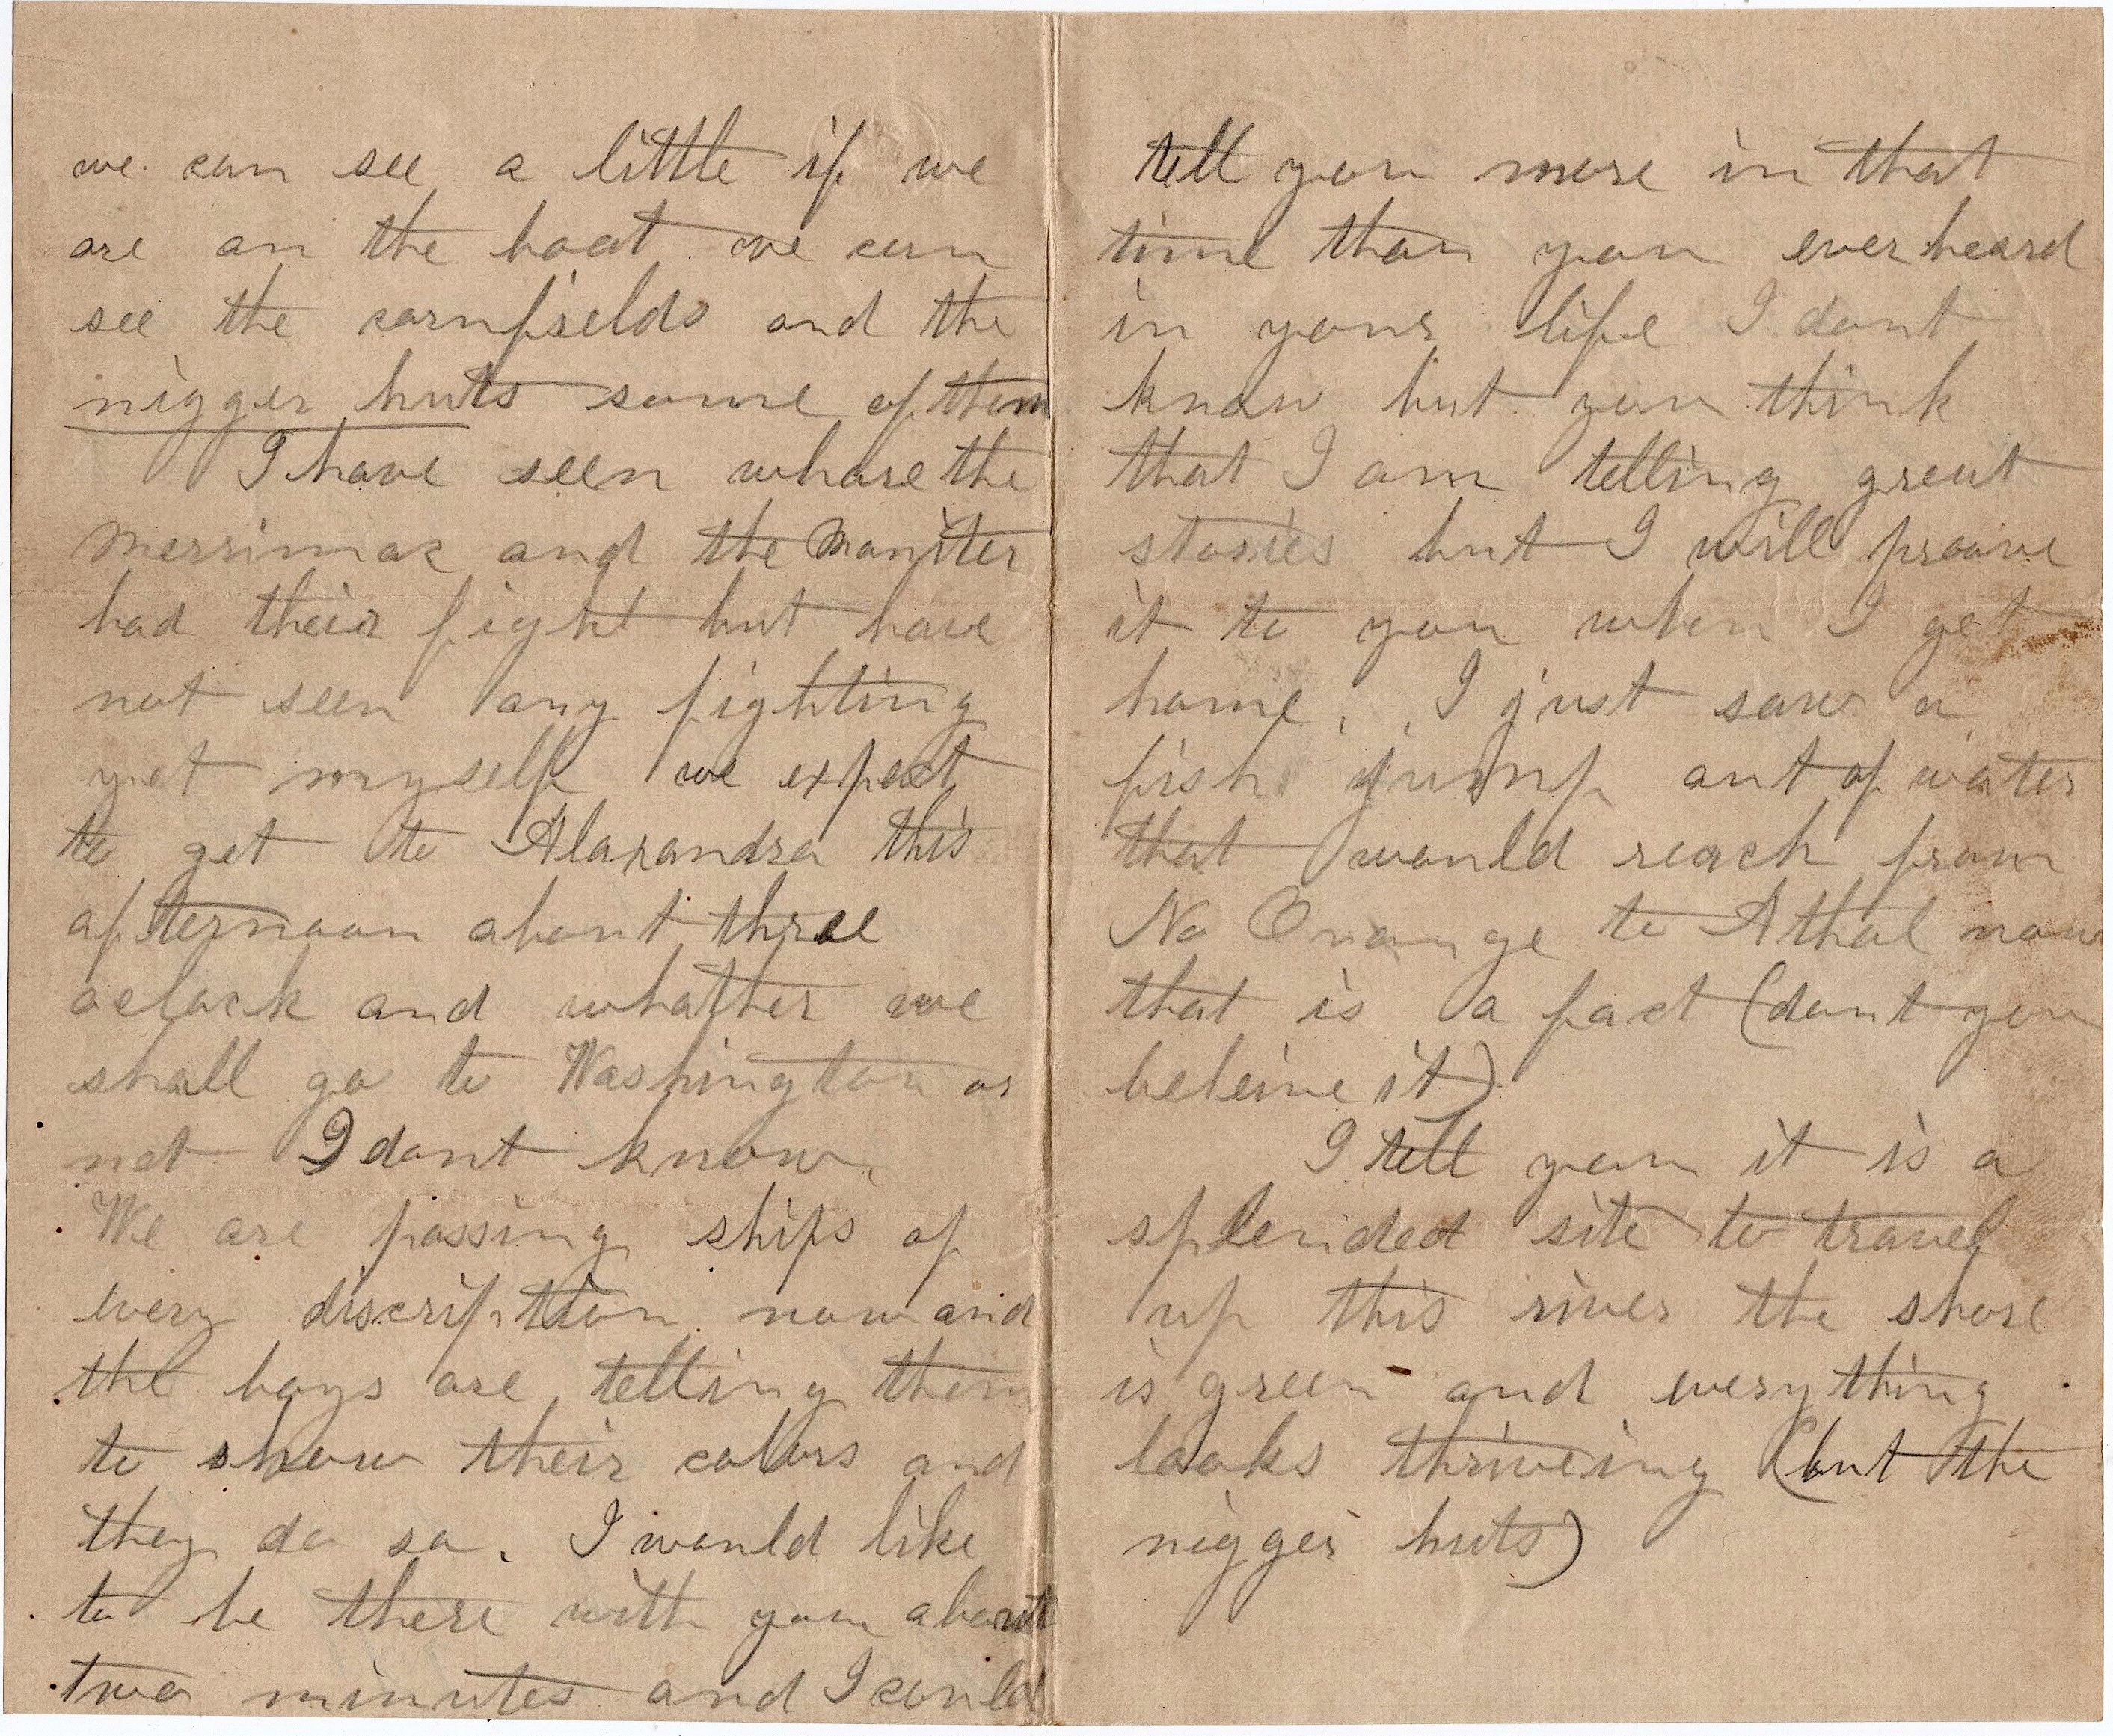 we can see a little if we
are on the boat we can
see the cornfields and the
nigger huts some of them
I have seen whare the
Merrimac and the Moniter
had their fight but have
not seen any fighting
yet myself we expect
to get to Alaxandra this
afternoon about three
oclock and whather we
shall go to Washington or
not I dont know.
We are passing ships of
every discription now and
the boys are telling them
to show their colors and
they do so. I would like
to be there with you about
two minutes and I could
tell you more in that
time than you ever heard
in your life I dont
know but you think
that I am telling great
stories but I will proove
it to you when I get
home. I just saw a
fish jump out of water
that would reach from
No Orange to Athol now
that is a fact (dont you
beleive it)
I tell you it is a
splended site to travel
up this river the shore
is green and everything
looks thriveing (but the
nigger huts)